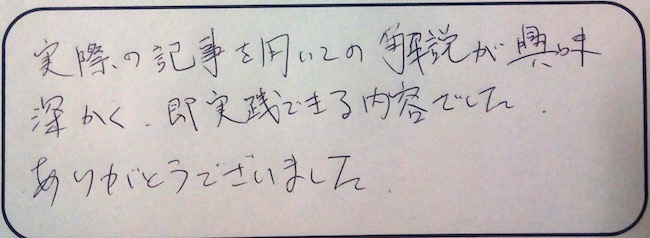 実際の記事を用いての解説が興味
深かく、即実践できる内容でした。
ありがとうございました。